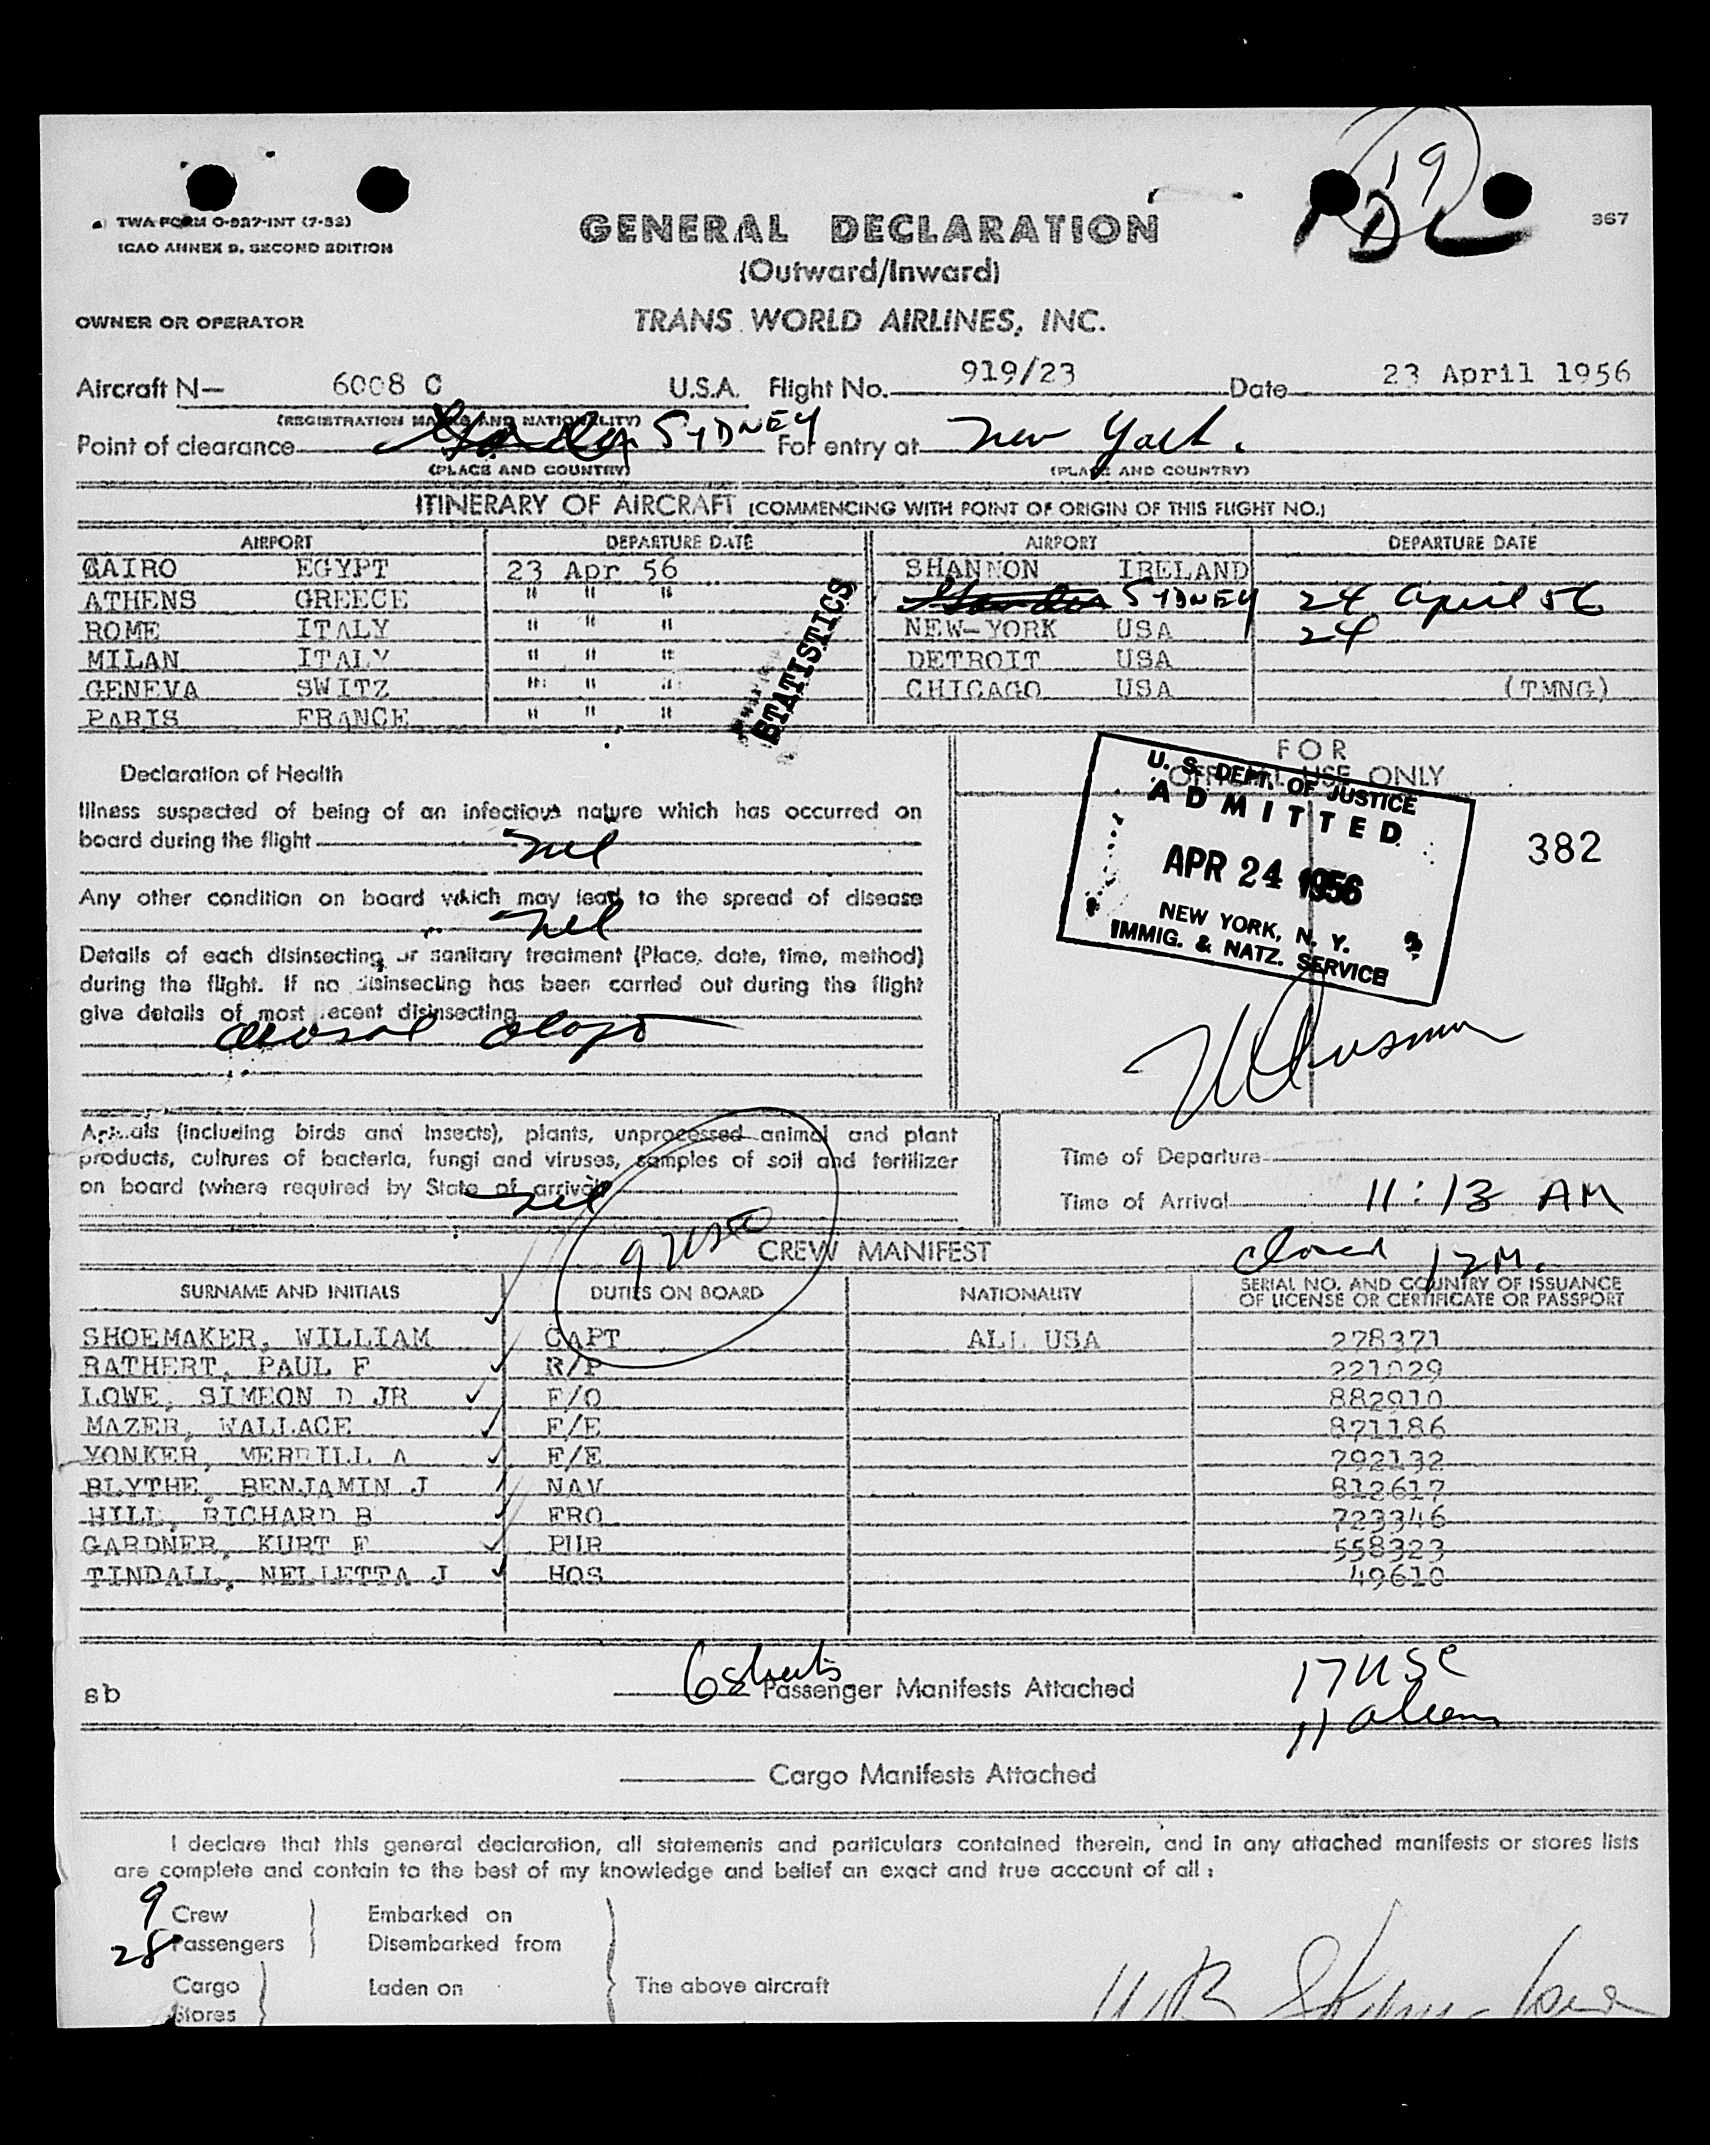 19
DL
TWA FORM O-927-INT (7-52)
ICAO ANNEX 9, SECOND EDITION
GENERAL DECLARATION
367
(Outward/Inward)
OWNER OR OPERATOR TRANS WORLD AIRLINES, INC.
Aircraft N— 6008 C U.S.A. Flight No. 919/23 Date 23 April 1956
(REGISTRATION MARKS AND NATIONALITY)
Point of clearance Gander SYDNEY For entry at New York.
(PLACE AND COUNTRY) (PLACE AND COUNTRY)
ITINERARY OF AIRCRAFT (COMMENCING WITH POINT OF ORIGIN OF THIS FLIGHT NO.)
AIRPORT DEPARTURE DATE AIRPORT DEPARTURE DATE
CAIRO EGYPT 23 Apr 56 SHANNON IRELAND
ATHENS GREECE " " " Gander SYDNEY 24 April 56
ROME ITALY " " " NEW-YORK USA 24
MILAN ITALY " " " DETROIT USA
GENEVA SWITZ " " " CHICAGO USA (TMNG)
PARIS FRANCE " " "
STATISTICS
Declaration of Health
Illness suspected of being of an infectious nature which has occurred on
board during the flight nil
Any other condition on board which may lead to the spread of disease
nil
Details of each disinsecting or sanitary treatment (Place, date, time, method)
during the flight. If no disinsecting has been carried out during the flight
give details of most recent disinsecting
FOR
OFFICIAL USE ONLY
U. S. DEPT. OF JUSTICE
ADMITTED
APR 24 1956
NEW YORK, N. Y.
IMMIG. & NATZ. SERVICE
382
Animals (including birds and insects), plants, unprocessed animal and plant
products, cultures of bacteria, fungi and viruses, samples of soil and fertilizer
on board (where required by State of arrival) nil
Time of Departure
Time of Arrival 11:13 AM
closed 12 M.
9 USC
CREW MANIFEST
SURNAME AND INITIALS DUTIES ON BOARD NATIONALITY SERIAL NO. AND COUNTRY OF ISSUANCE
OF LICENSE OR CERTIFICATE OR PASSPORT
SHOEMAKER, WILLIAM CAPT ALL USA 278371
RATHERT, PAUL F R/P 221029
LOWE, SIMEON D JR F/O 882910
MAZER, WALLACE F/E 871186
YONKER, MERRILL A F/E 792132
BLYTHE, BENJAMIN J NAV 812617
HILL, RICHARD B FRO 723346
GARDNER, KURT F PUR 558323
TINDALL, NELLETTA J HOS 49610
sb 6 sheets Passenger Manifests Attached 17 USC
11 aliens
Cargo Manifests Attached
I declare that this general declaration, all statements and particulars contained therein, and in any attached manifests or stores lists
are complete and contain to the best of my knowledge and belief an exact and true account of all :
9 Crew Embarked on
28 Passengers Disembarked from
Cargo Laden on The above aircraft
Stores